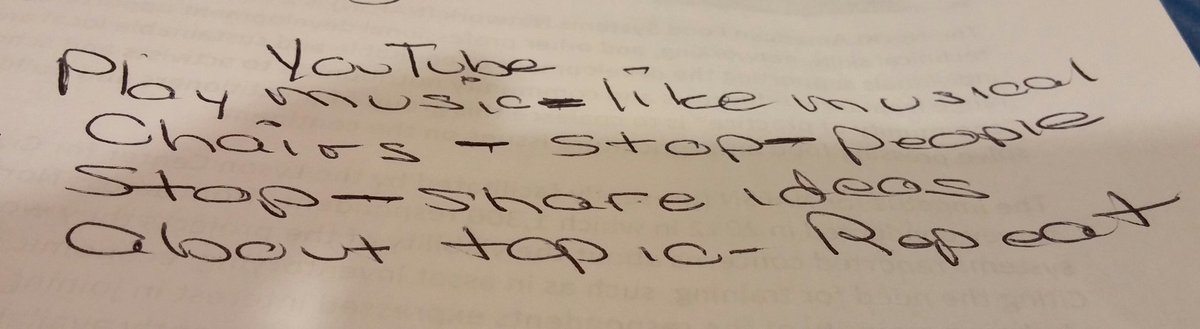 YouTube
Play music - like musical
Chairs - stop - people
Stop - share ideas
About topic - Repeat